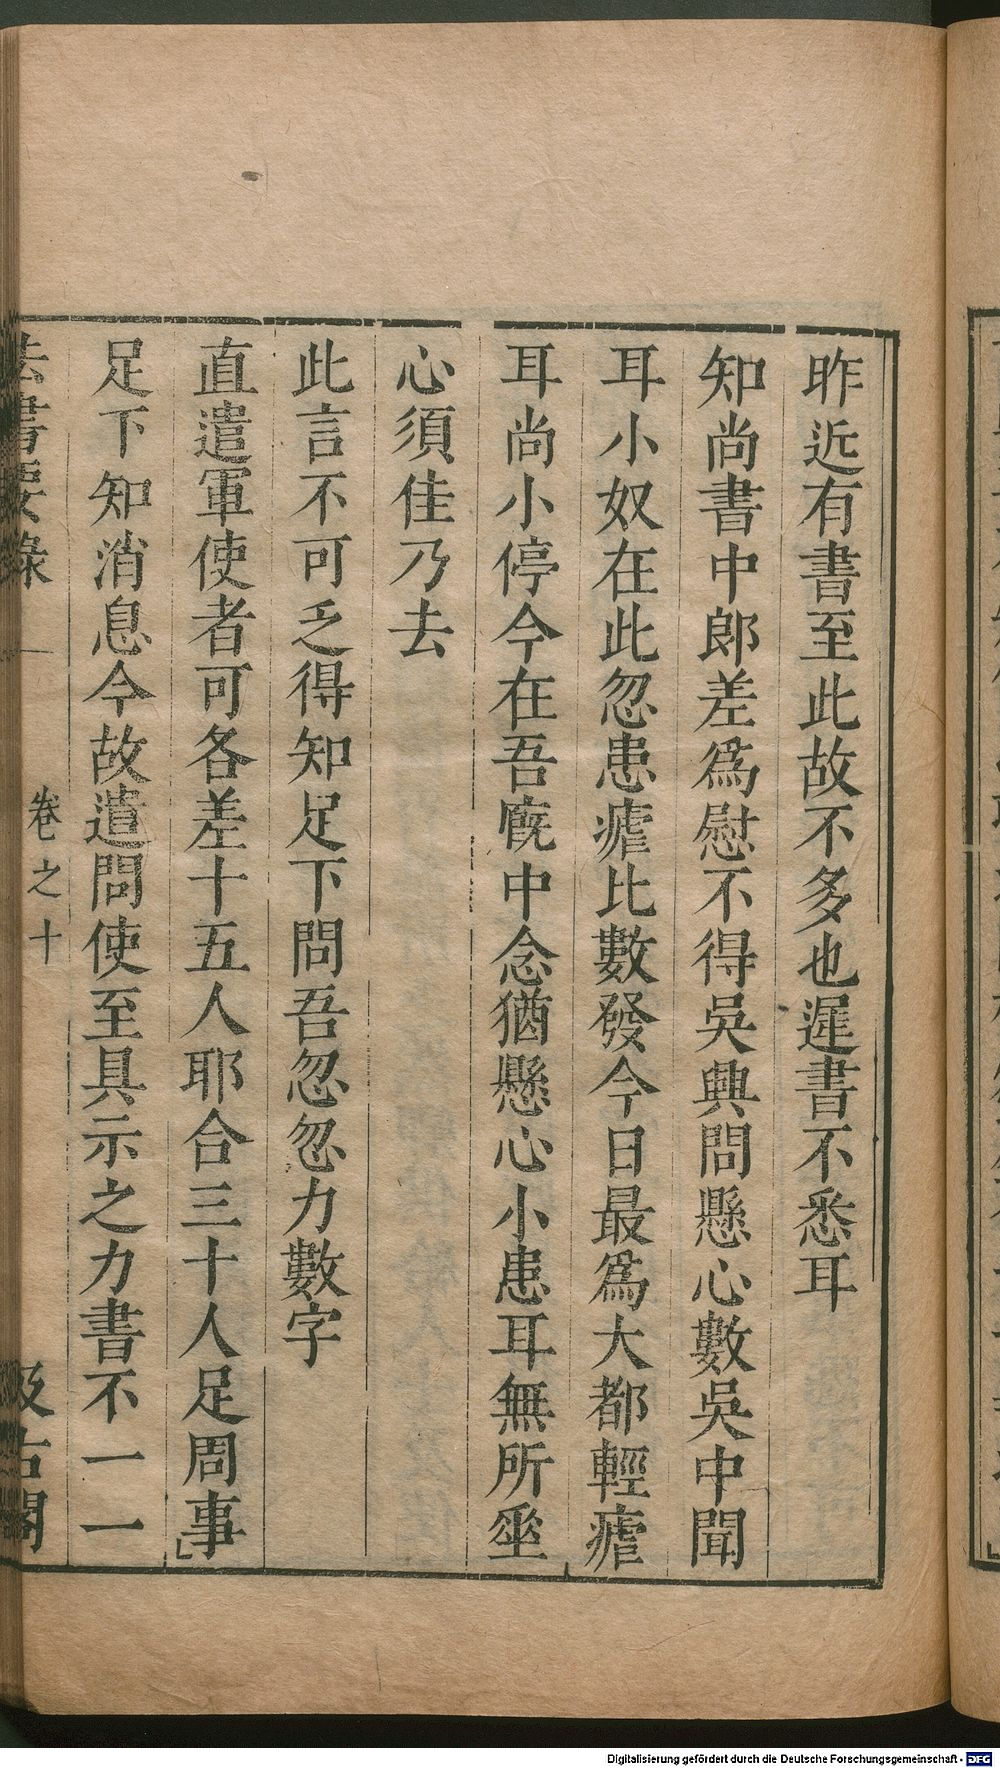 昨近有書至此故不多也遲書不悉耳
知尚書中郎差爲慰不得吳興問懸心數吳中聞
耳小奴在此忽患瘧比數發今日最爲大都輕瘧
耳尚小停今在吾廐中念猶懸心小患耳無所坐
心須佳乃去
此言不可乏得知足下問吾忽忽力數字
直遣軍使者可各差十五人耶合三十人足周事
足下知消息今故遣問使至具示之力書不一一
法書要錄
卷之十
汲古閣
Digitalisierung gefördert durch die Deutsche Forschungsgemeinschaft - DFG